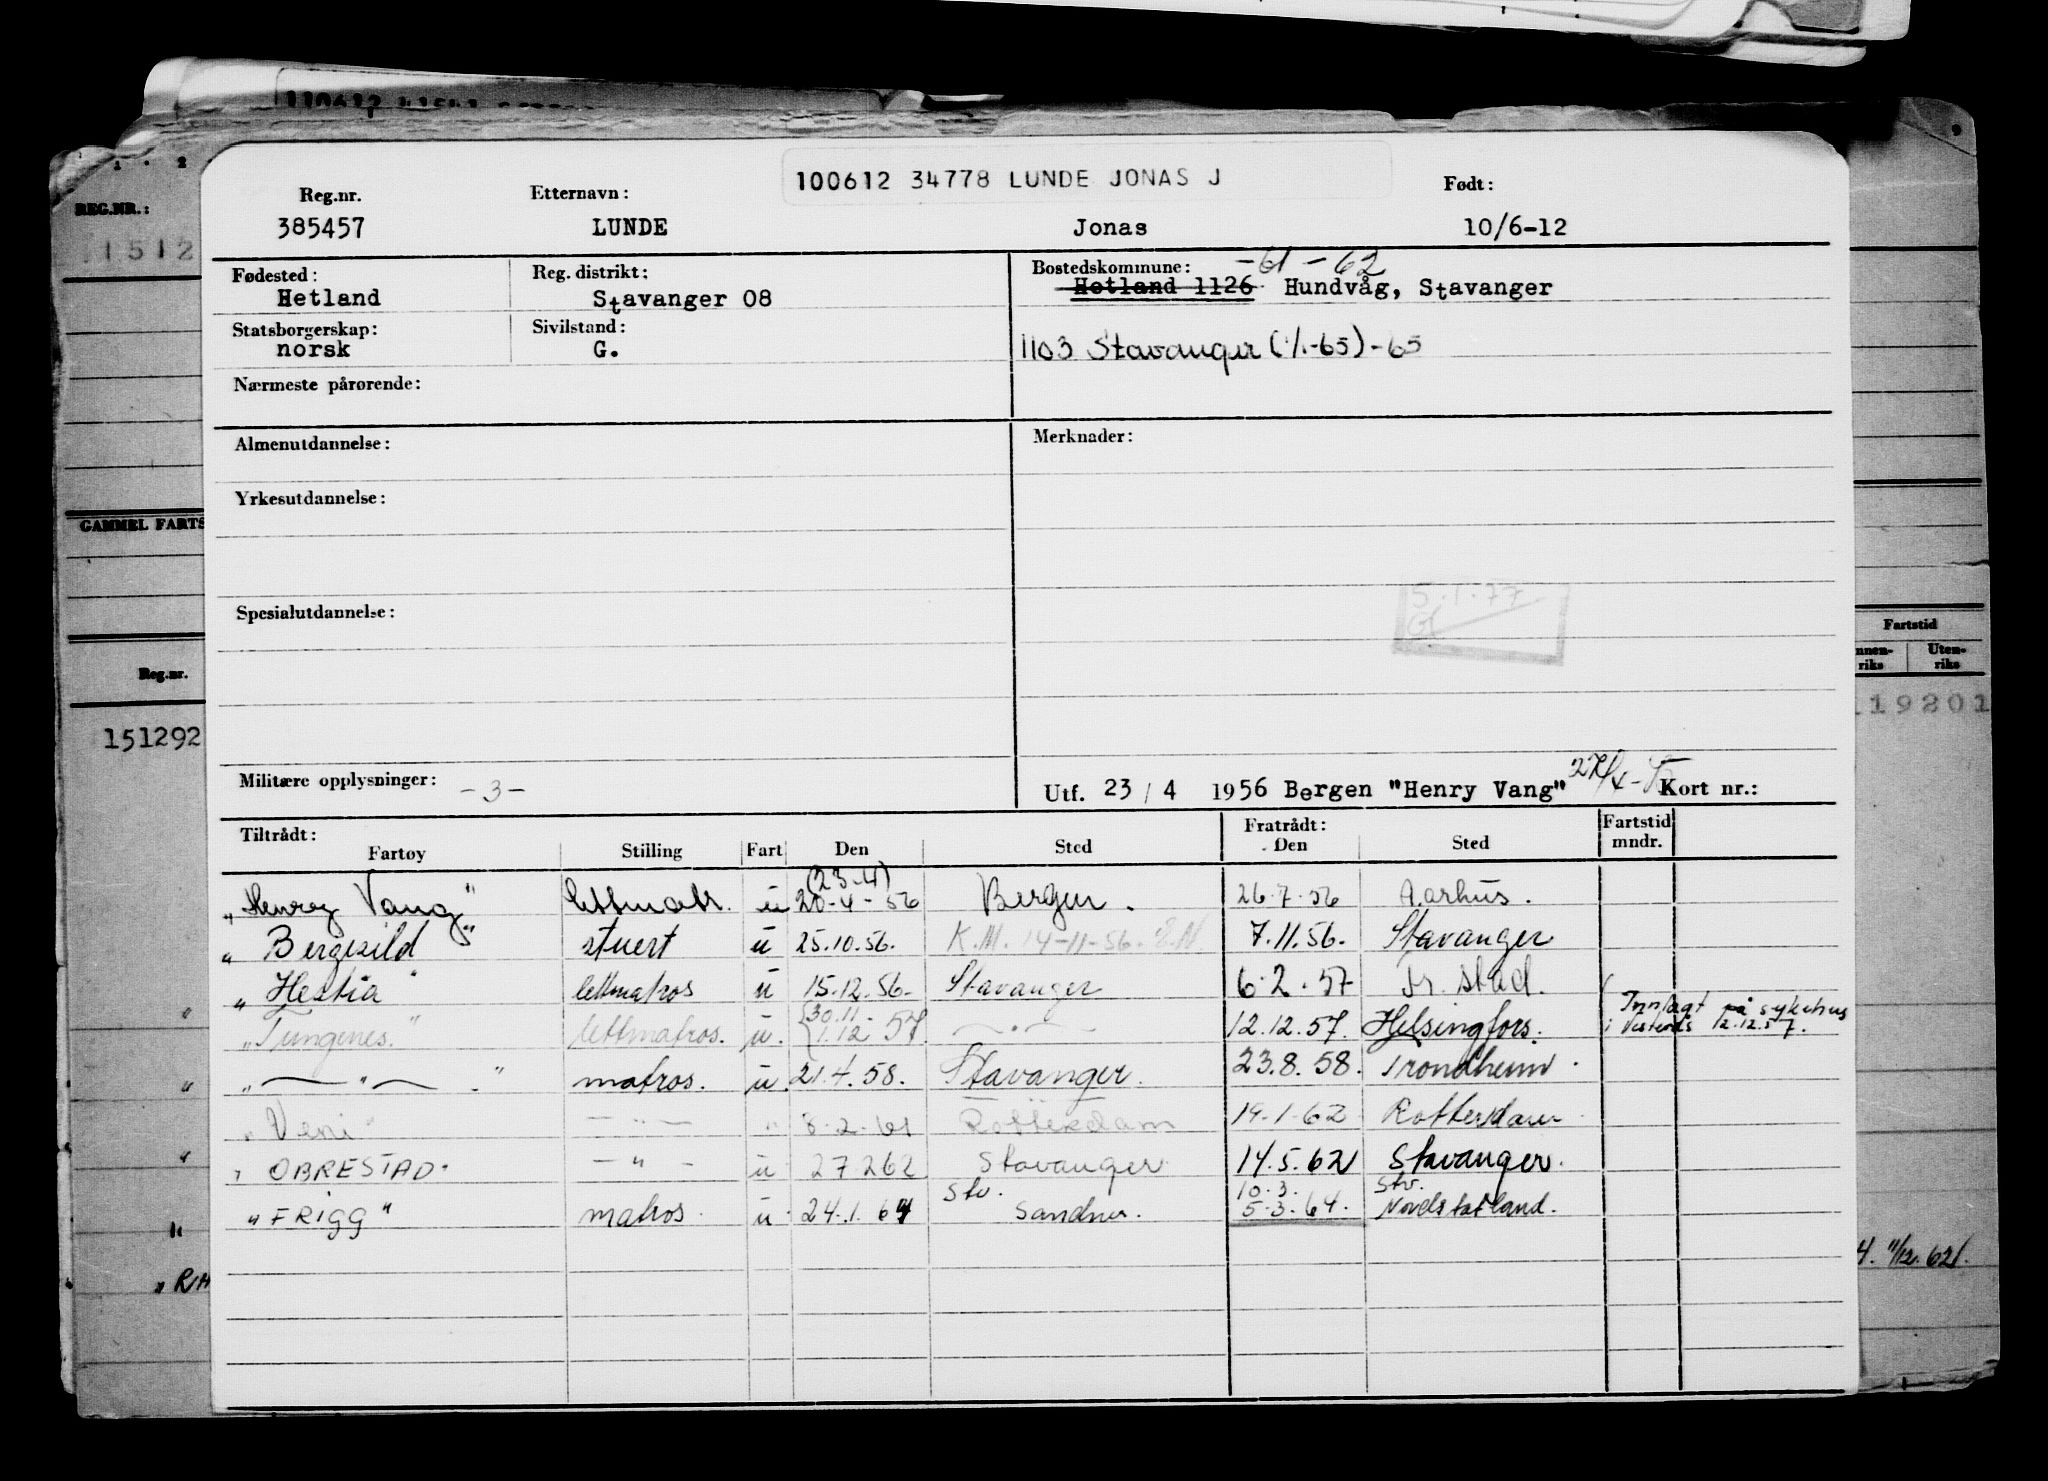 100612 34778 LUNDE JONAS J
Reg.nr. Etternavn: Født:
385457 LUNDE Jonas 10/6-12
Fødested: Reg. distrikt: Bostedskommune: -61-62
Hetland Stavanger 08 Hetland 1126 Hundvåg, Stavanger
Statsborgerskap: Sivilstand:
norsk G. 1103 Stavanger (1/1-65)-65
Nærmeste pårørende:
Almenutdannelse: Merknader:
Yrkesutdannelse:
GAMMEL FARTS
5.1.77
Spesialutdannelse:
Militære opplysninger: -3- Utf. 23/4 1956 Bergen "Henry Vang" Kort nr.:
Tiltrådt: Fratrådt: Fartstid
Fartøy Stilling Fart Den Sted Den Sted mndr.
(23.4)
"Henry Vang" lettmatr. u 20-4-56 Bergen. 26.7.56 Aarhus.
"Bergsild" stuert u 25.10.56. K.M. 14-11-56. 7.11.56. Stavanger
"Hestia" lettmatros u 15.12.56- Stavanger 6.2.57 Fr.stad.
30.11- Innlagt på sykehus
"Tungenes." lettmatros. u. 1.12 57. — " — 12.12.57. Helsingfors. i Västerås 12.12.57.
" — " — " matros. u. 21.4.58. Stavanger. 23.8.58. Trondheim.
"Veni" — " — " 8.2.61 Rotterdam 19.1.62 Rotterdam
"OBRESTAD" — " — u 27 2 62 Stavanger 14.5.62 Stavanger.
Stv. 10.3. Stv.
"FRIGG" matros. u 24.1.64 Sandnes. 5.3.64. Nordstatland.
REG.NR.:
1512
Reg.nr.
151292
Fartstid
Uten-
riks
19201
4. 11/12.62.